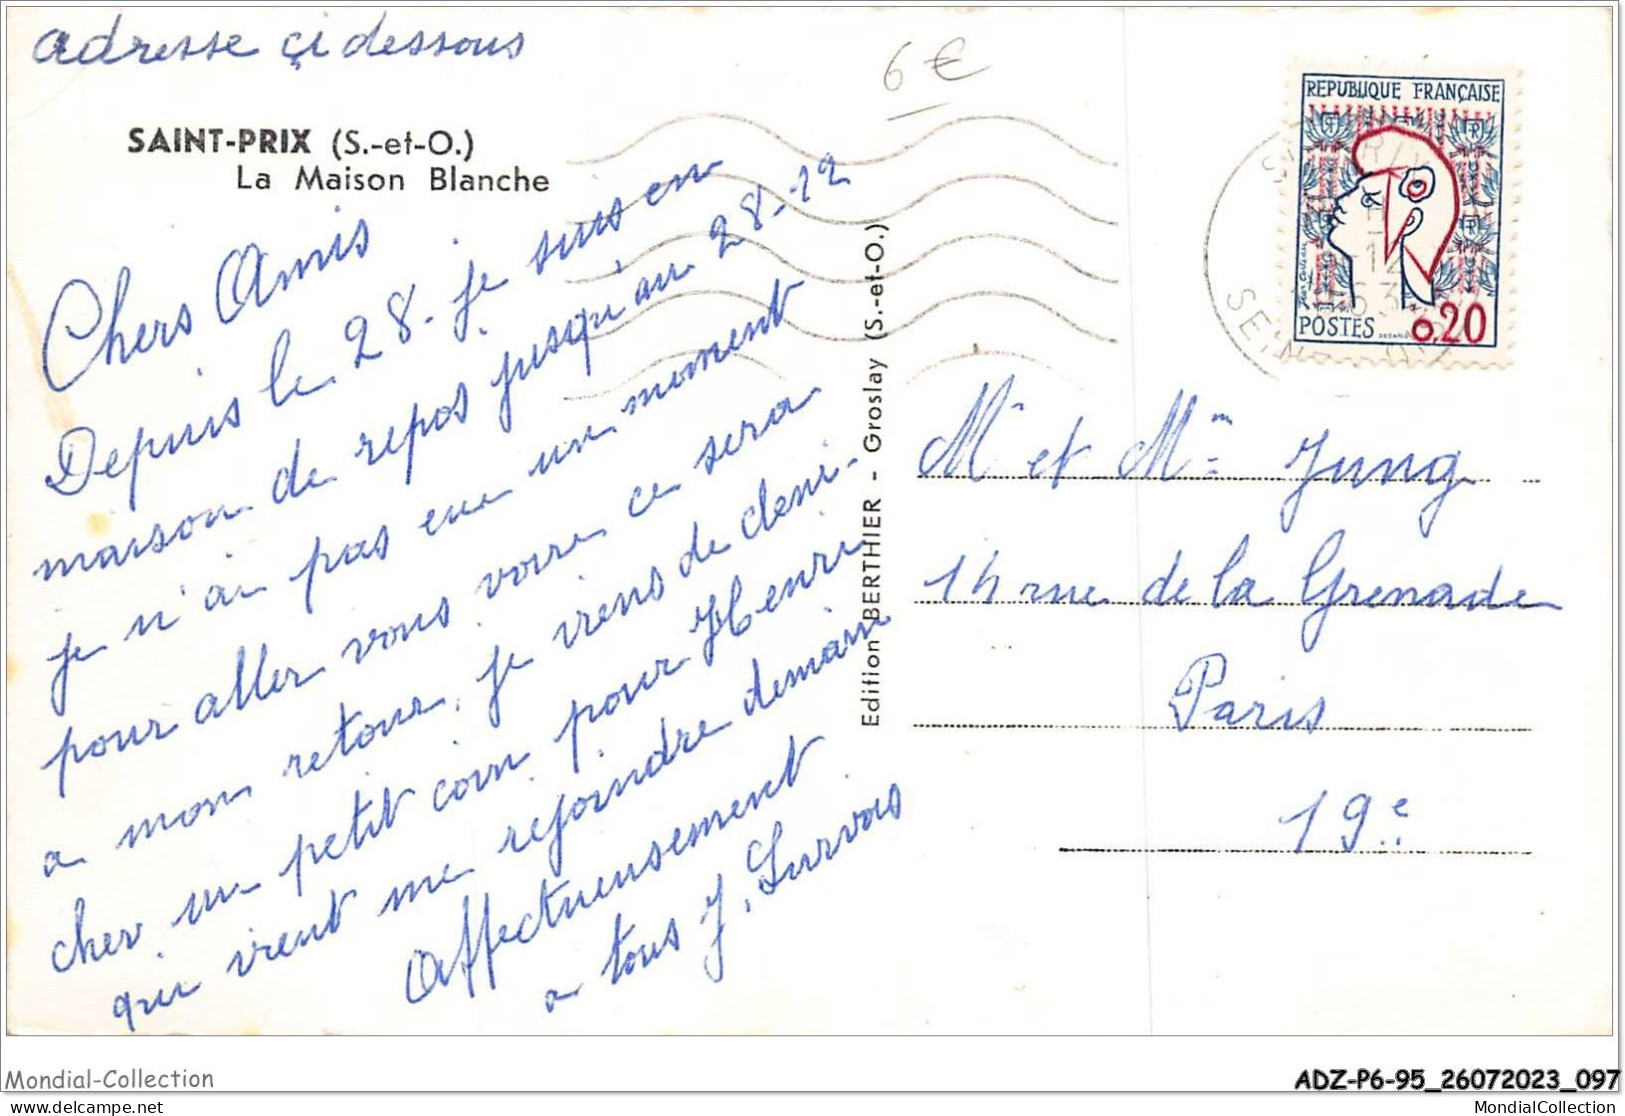 adresse çi dessous
6€
SAINT-PRIX (S.-et-O.)
La Maison Blanche
Chers Amis
Depuis le 28. je suis en
maison de repos jusqu'au 28-12
je n'ai pas eue un moment
pour aller vous voire ce sera
a mon retour, je viens de deni-
cher un petit coin pour Henri
qui vient me rejoindre demain
Affectueusement
a tous J.
Edition BERTHIER - Groslay (S.-et-O.)
REPUBLIQUE FRANÇAISE
POSTES 0,20
SEINE
Mr et Mme Jung
14 rue de la Grenade
Paris
19e
Mondial-Collection
ADZ-P6-95_26072023_097
delcampe.net
MondialCollection